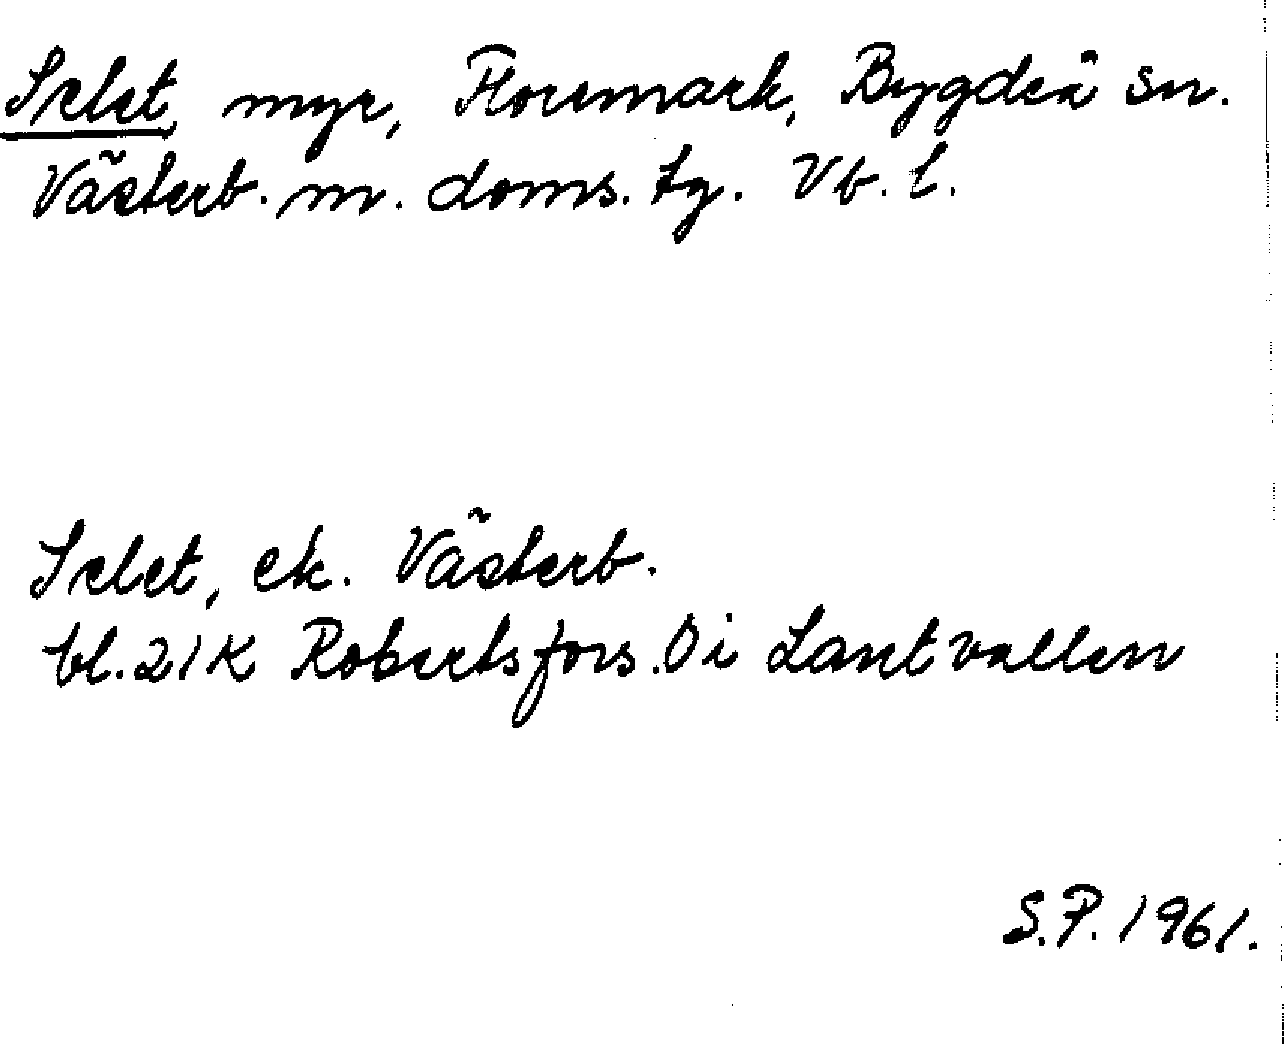 Selet, myr, Flormark, Bygdeå sn.
Västerb. m. doms. tg. Vb. l.
Selet, ek. Västerb.
bl. 21K Robertsfors. Öi Lantvallen
S.P. 1961.